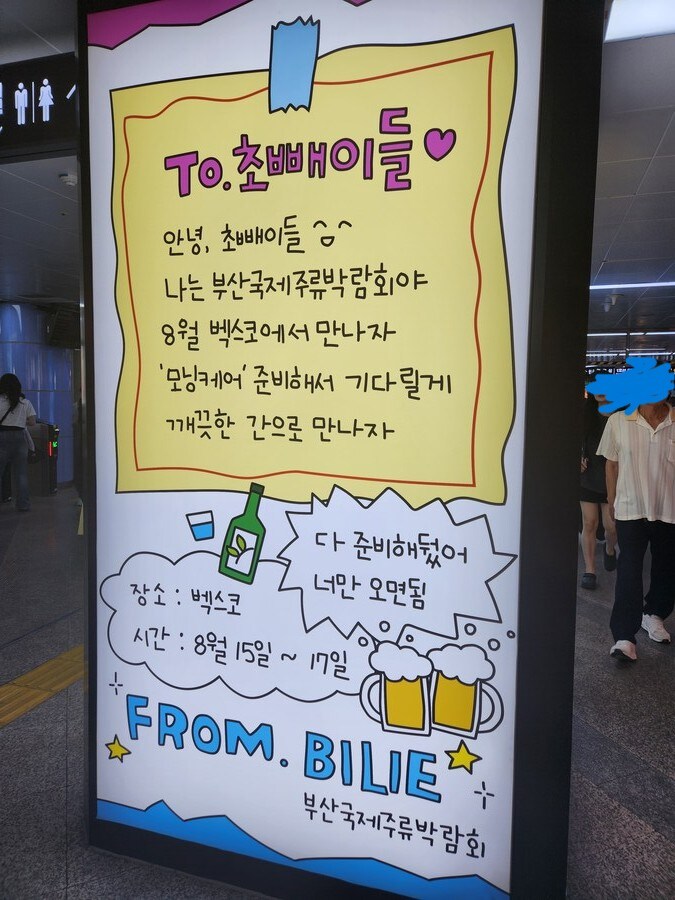 To. 초빼이들♥
안녕, 초빼이들 ^ㅁ^
나는 부산국제주류박람회야
8월 벡스코에서 만나자
'모닝케어' 준비해서 기다릴게
깨끗한 간으로 만나자
다 준비해뒀어
너만 오면됨
장소 : 벡스코
시간 : 8월 15일 ~ 17일
FROM. BILIE
부산국제주류박람회